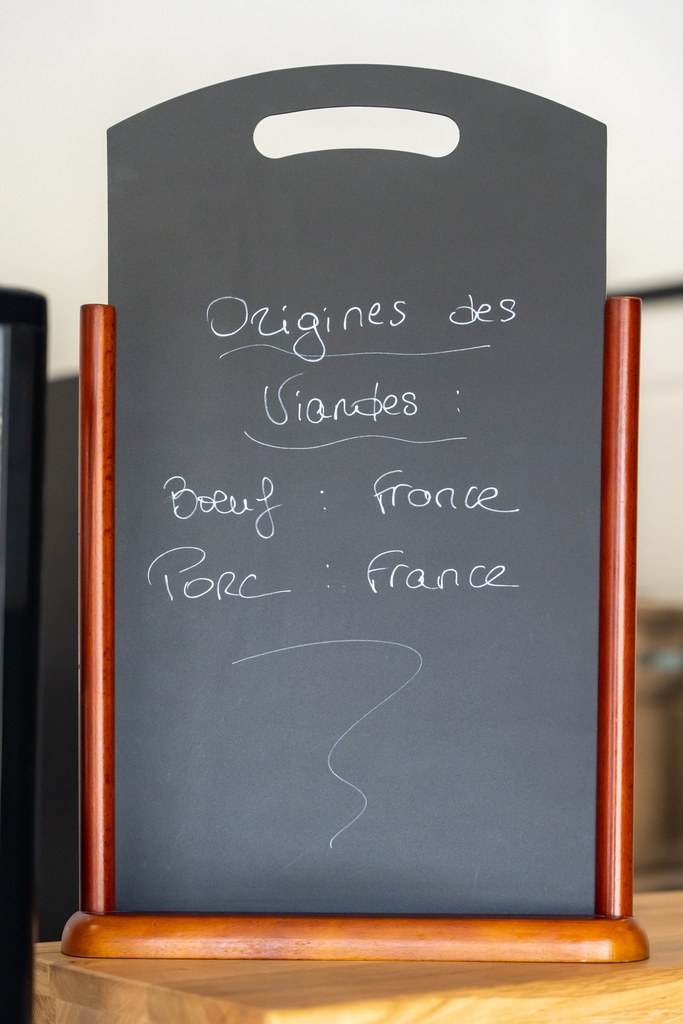 Origines des
Viandes :
Boeuf : France
Porc : France